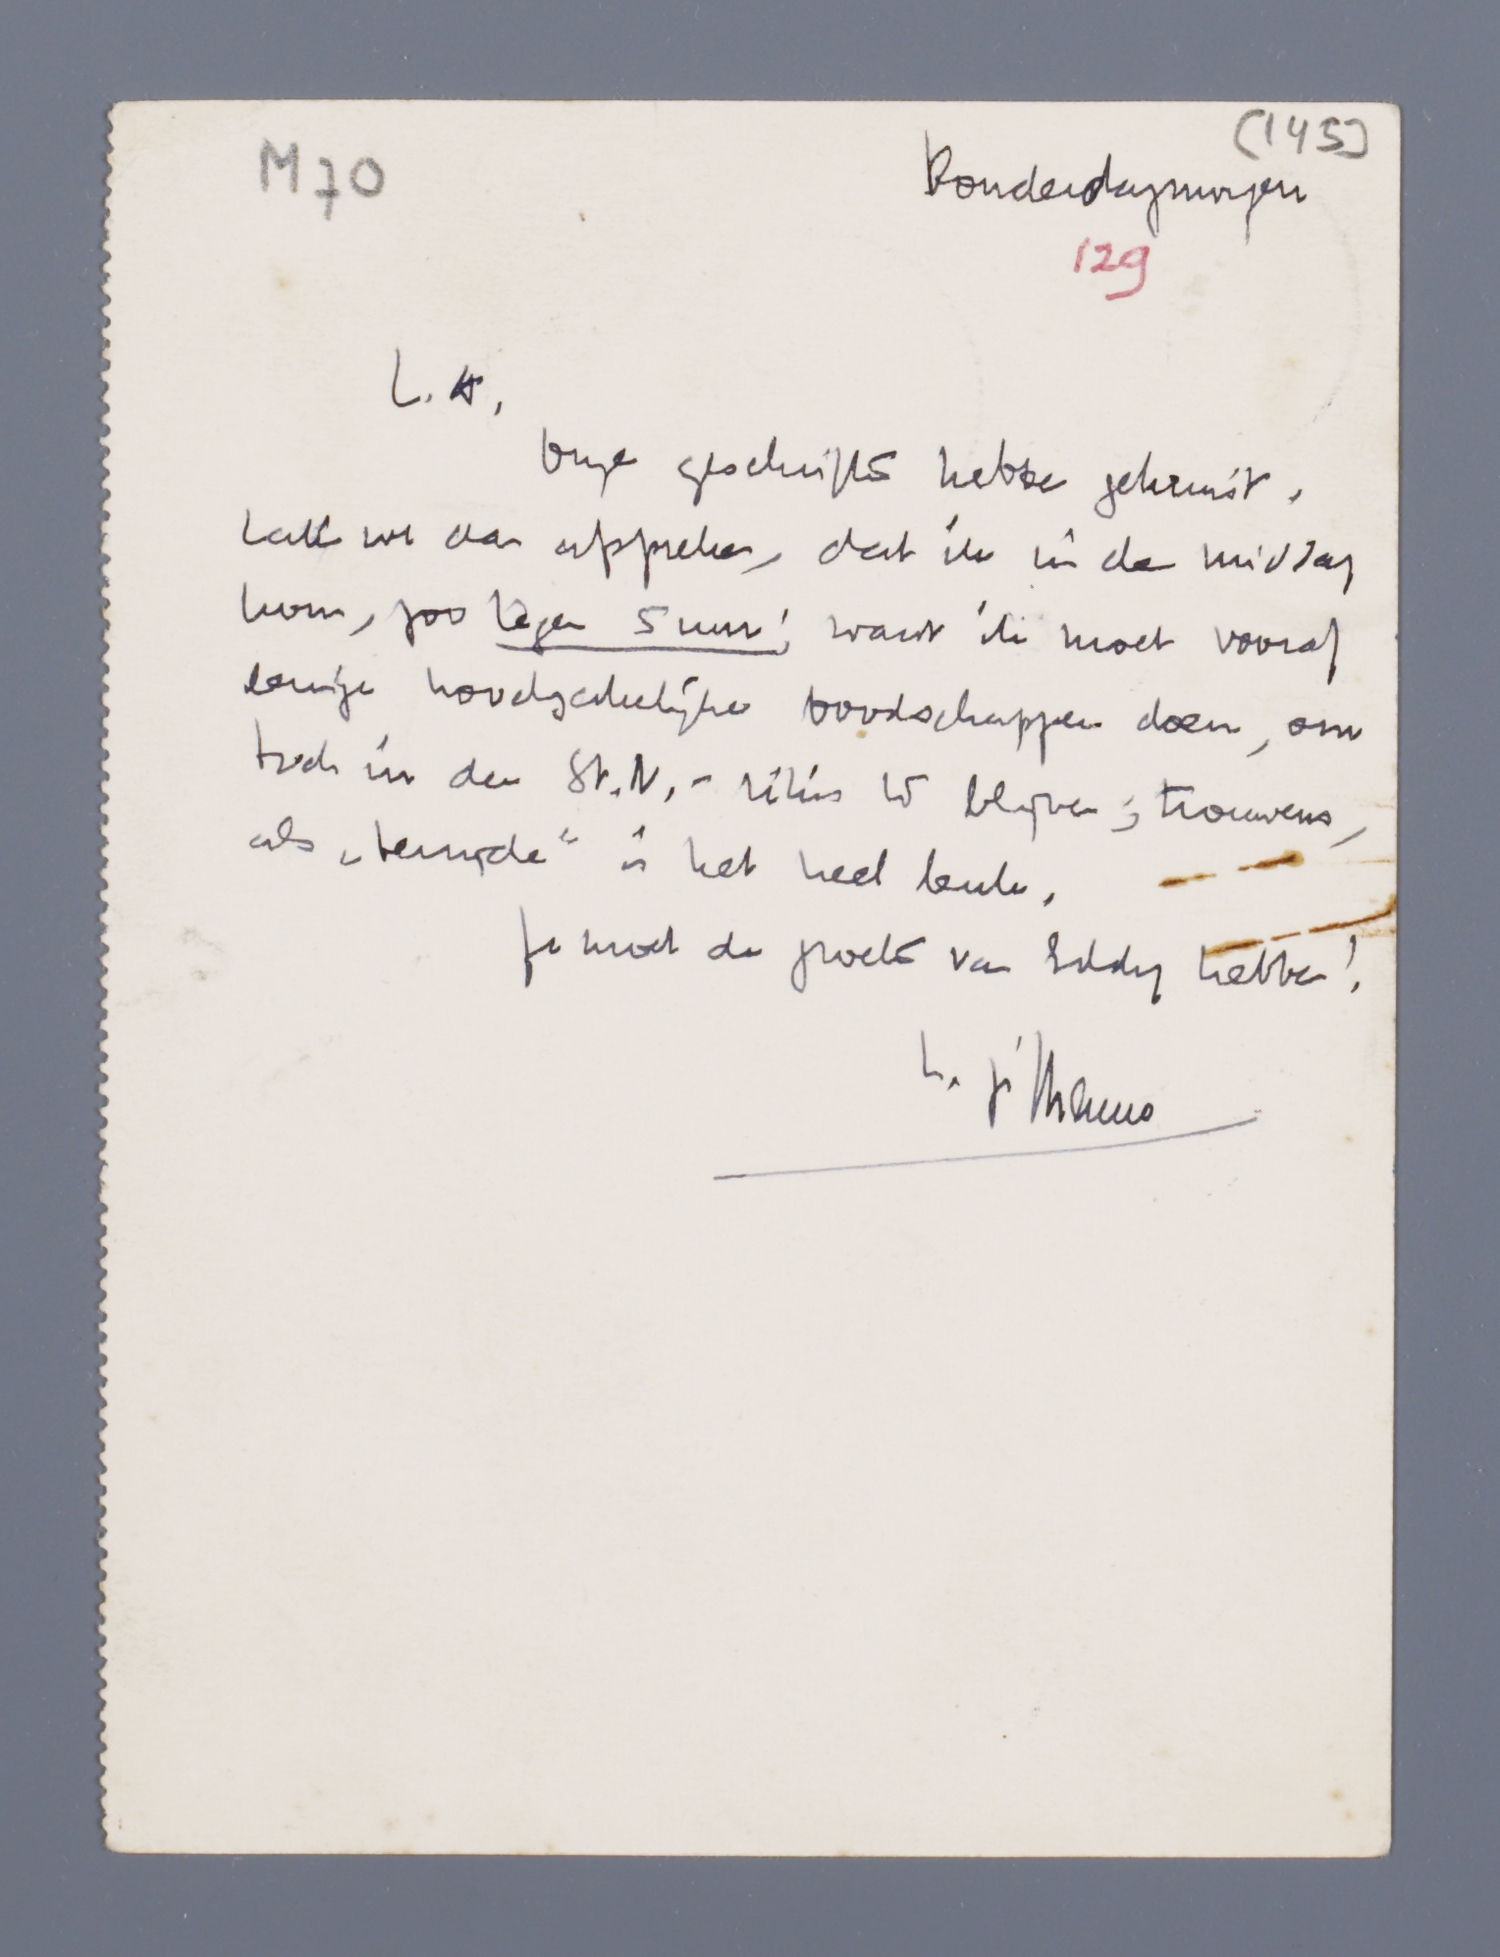 M70
(145)
Donderdagmorgen
129
L. A.,
Onze geschriften hebben gekruist.
Laten we dan afspreken, dat ik in de middag
kom, zoo tegen 5 uur; want ik moet vooraf
eenige noodzakelijke boodschappen doen, om
toch in den St. N.-ritus te blijven; trouwens,
als „temide“ is het heel leuk.
Je moet de groeten van Eddy hebben!
h. gr. Menno